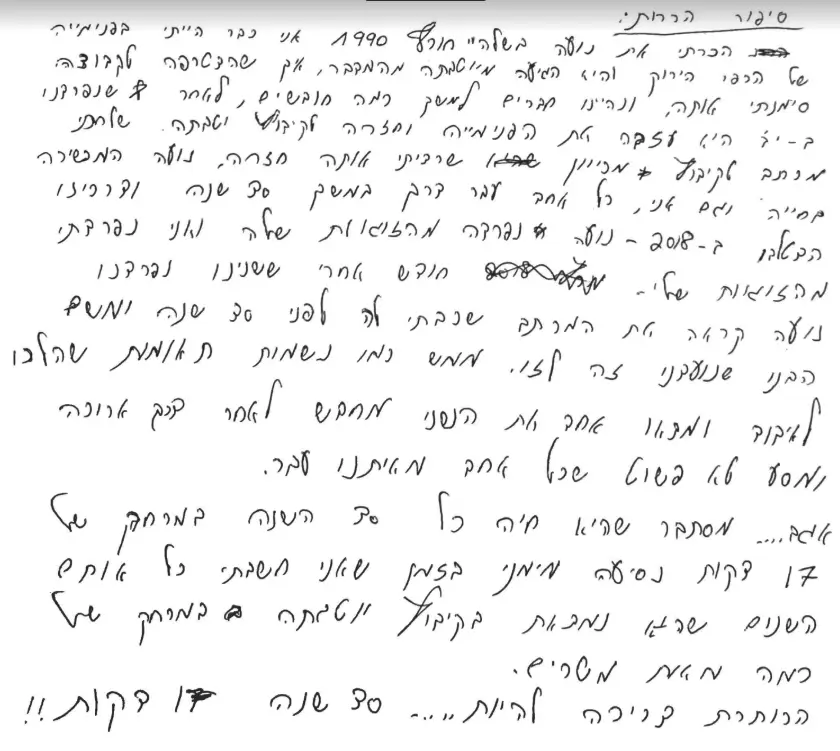 סיפור הכרות:
הכרתי את נועה בשלהיי חורף 1990 אני כבר הייתי בפנימייה
של הכפר הירוק והיא הגיעה מיוטבתה מהמדבר, איך שהצטרפה לקבוצה
סימנתי אותה, ונהיינו חברים למשך כמה חודשים, לאחר שנפרדנו
ב-י"ג היא עזבה את הפנימייה וחזרה לקיבוץ יטבתה. שלחתי
מכתב לקיבוץ מכייון שרציתי אותה חזרה, נועה המשיכה
בחייה וגם אני, כל אחד עבר דרך במשך 30 שנה ודרכינו
הצטלבו ב-2018 - נועה נפרדה מהזוגיות שלה ואני נפרדתי
מהזוגיות שלי - חודש אחרי ששנינו נפרדנו
נועה קראה את המכתב שכתבתי לה לפני 30 שנה ומשם
הבנו שנועדנו זה לזו. ממש כמו נשמות תאומות שהלכו
לאיבוד ומצאו אחד את השני מחדש לאחר דרך ארוכה
ומסע לא פשוט שכל אחד מאיתנו עבר.
אגב.... מסתבר שהיא חיה כל 30 השנה במרחק של
17 דקות נסיעה מימני בזמן שאני חשבתי כל אותם
השנים שהיא נמצאת בקיבוץ יוטבתה במרחק של
כמה מאות מטרים.
הכותרת צריכה להיות..... 30 שנה 17 דקות!!